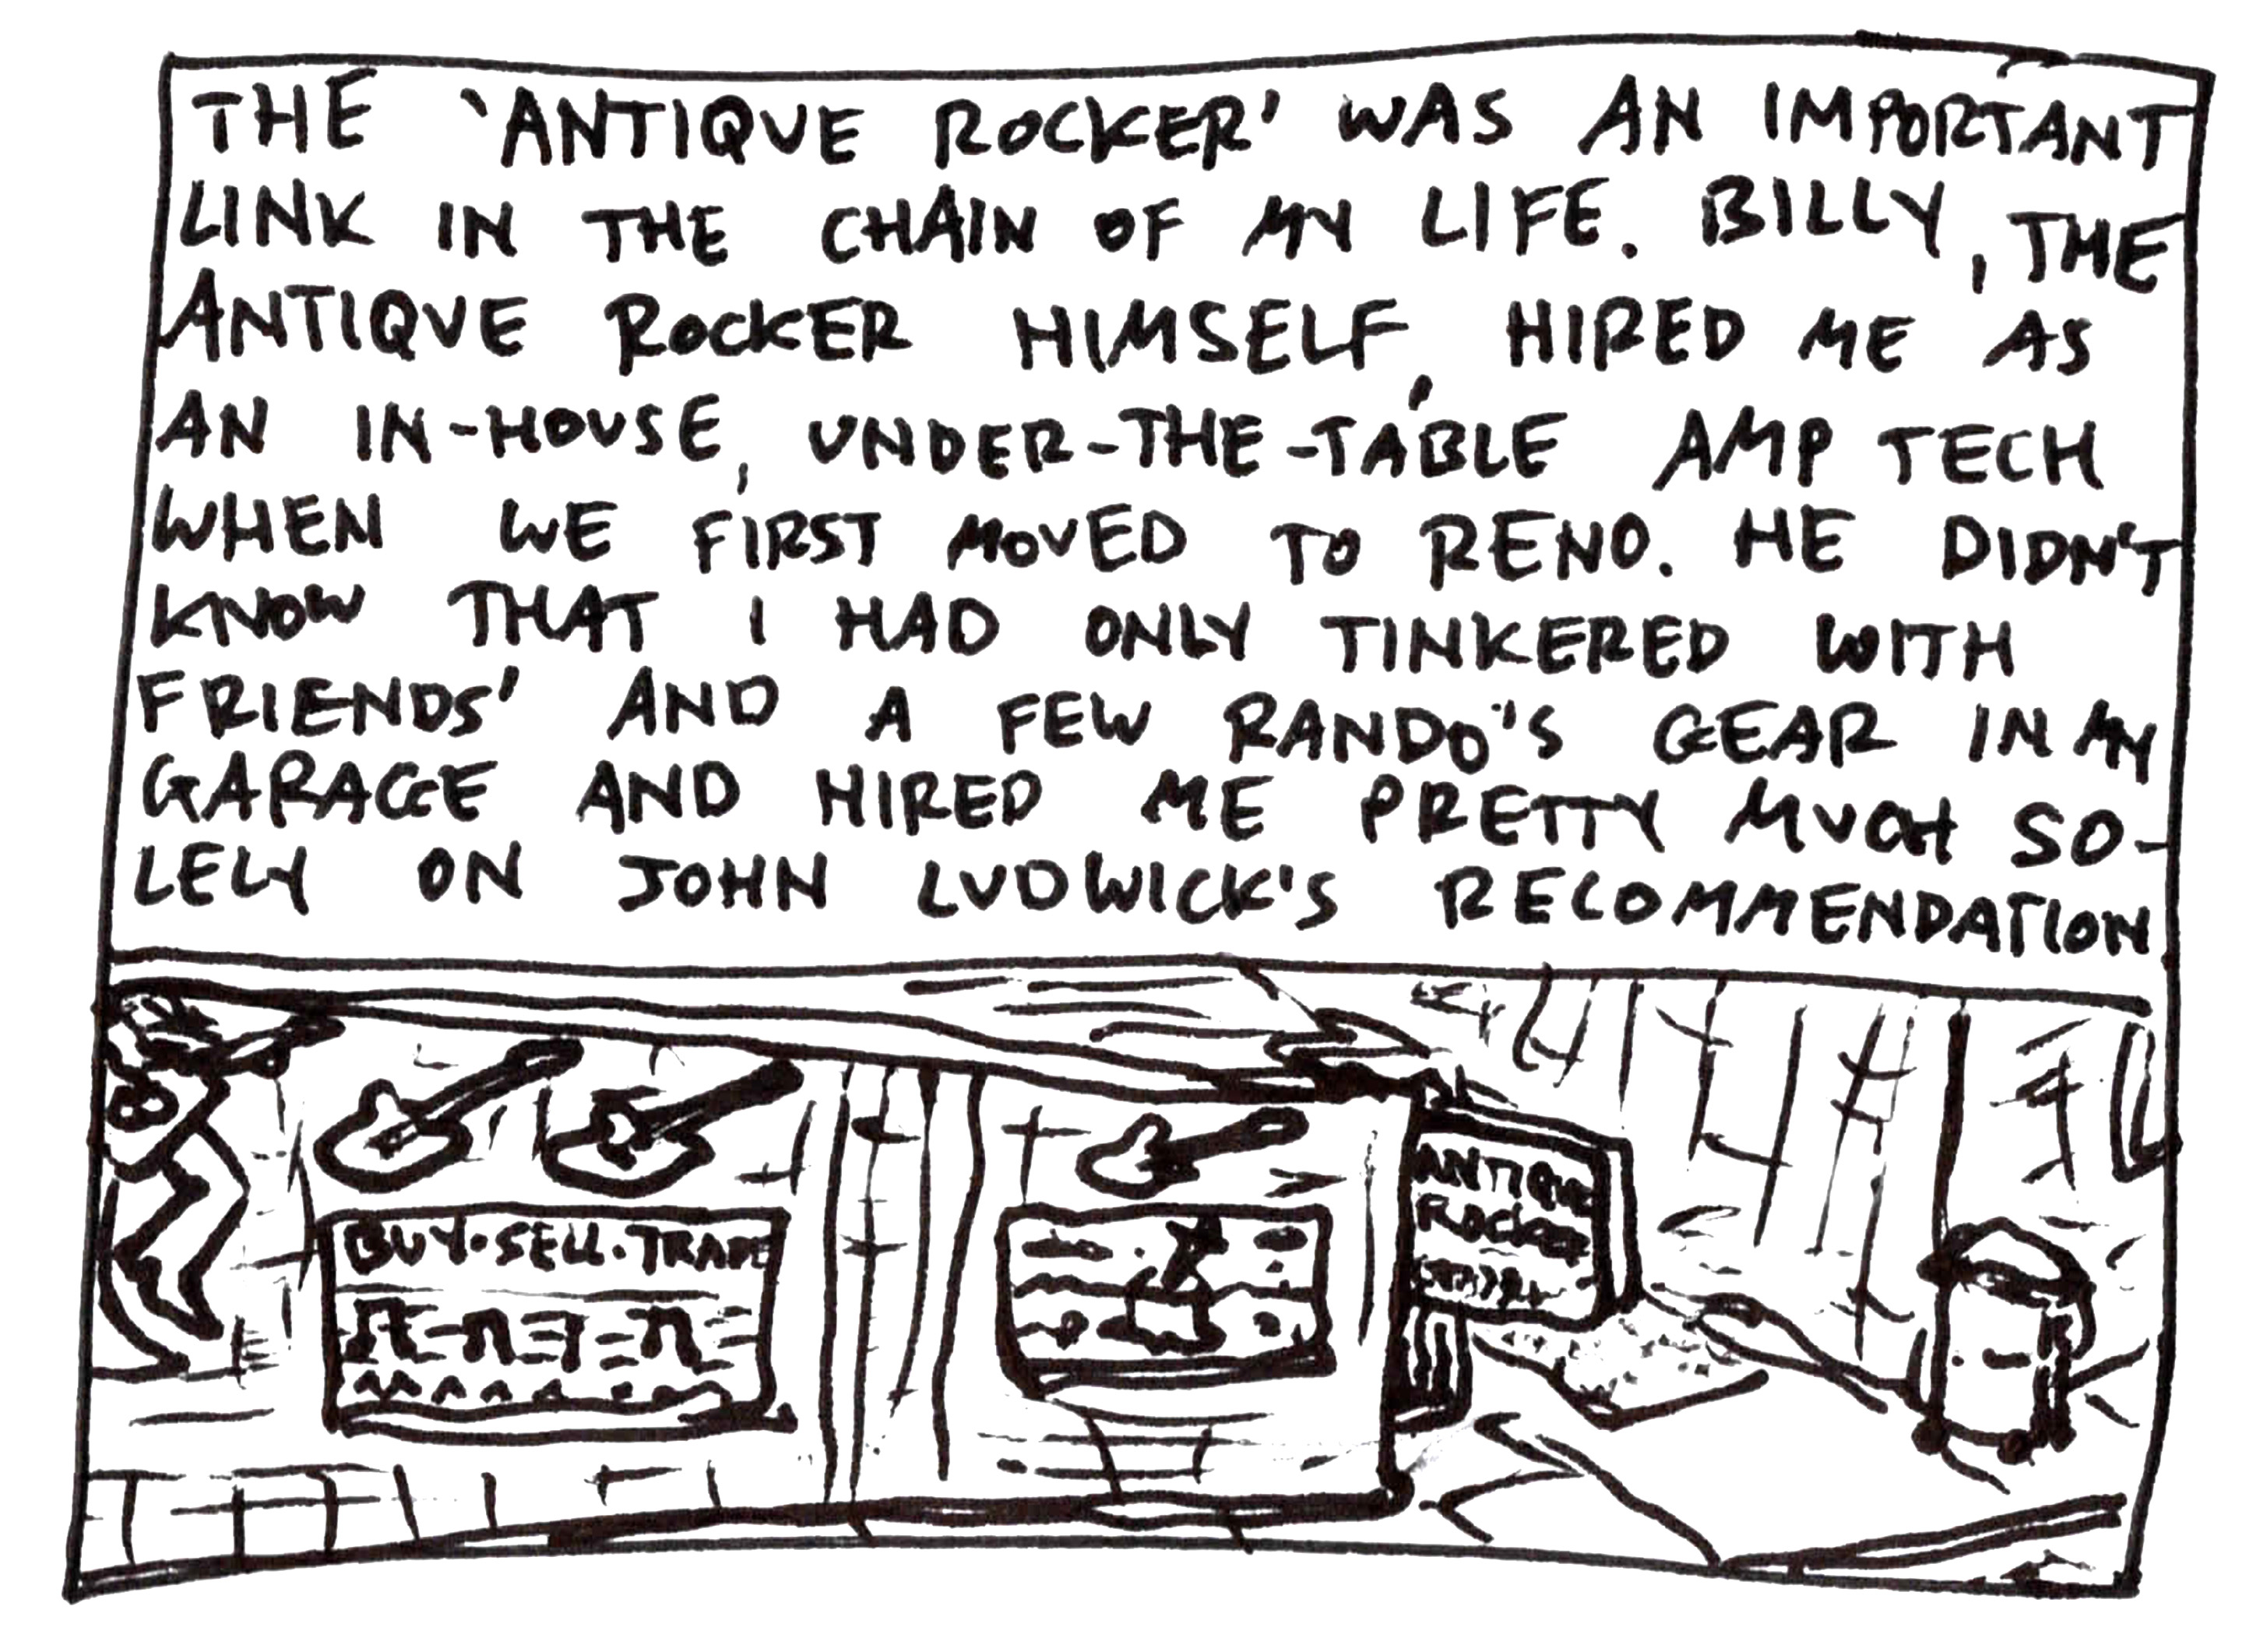 THE 'ANTIQUE ROCKER' WAS AN IMPORTANT
LINK IN THE CHAIN OF MY LIFE. BILLY, THE
ANTIQUE ROCKER HIMSELF, HIRED ME AS
AN IN-HOUSE, UNDER-THE-TABLE AMP TECH
WHEN WE FIRST MOVED TO RENO. HE DIDN'T
KNOW THAT I HAD ONLY TINKERED WITH
FRIENDS' AND A FEW RANDO'S GEAR IN MY
GARAGE AND HIRED ME PRETTY MUCH SO-
LELY ON JOHN LUDWICK'S RECOMMENDATION
BUY·SELL·TRADE
ANTIQUE
ROCKER